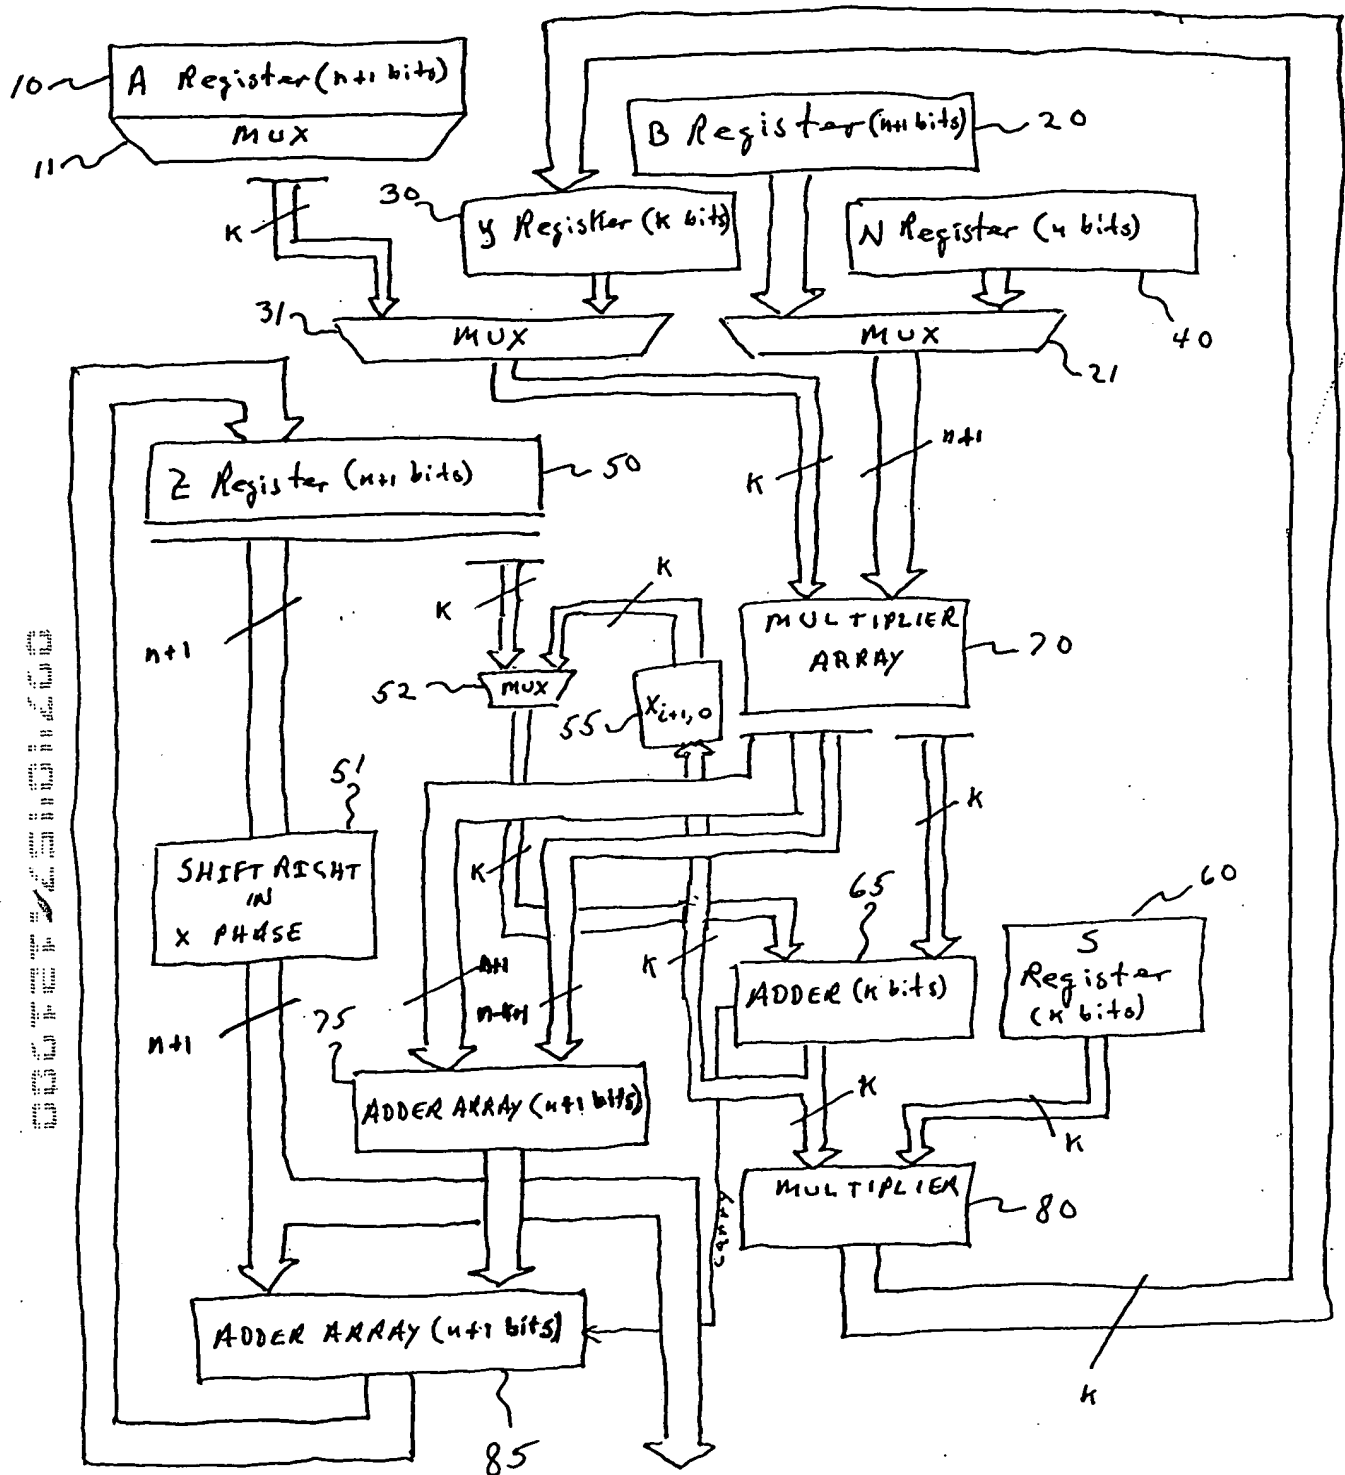 10
A Register (n+1 bits)
MUX
11
B Register (n+1 bits)
20
30
y Register (k bits)
N Register (n bits)
40
K
31
MUX
MUX
21
Z Register (n+1 bits)
50
K
n+1
K
K
n+1
52
MUX
55
X i+1,0
MULTIPLIER
ARRAY
70
51
SHIFT RIGHT
IN
X PHASE
K
K
65
60
S
Register
(k bits)
n+1
n+1
n-k+1
K
ADDER (k bits)
75
ADDER ARRAY (n+1 bits)
K
K
MULTIPLIER
80
carry
ADDER ARRAY (n+1 bits)
85
K